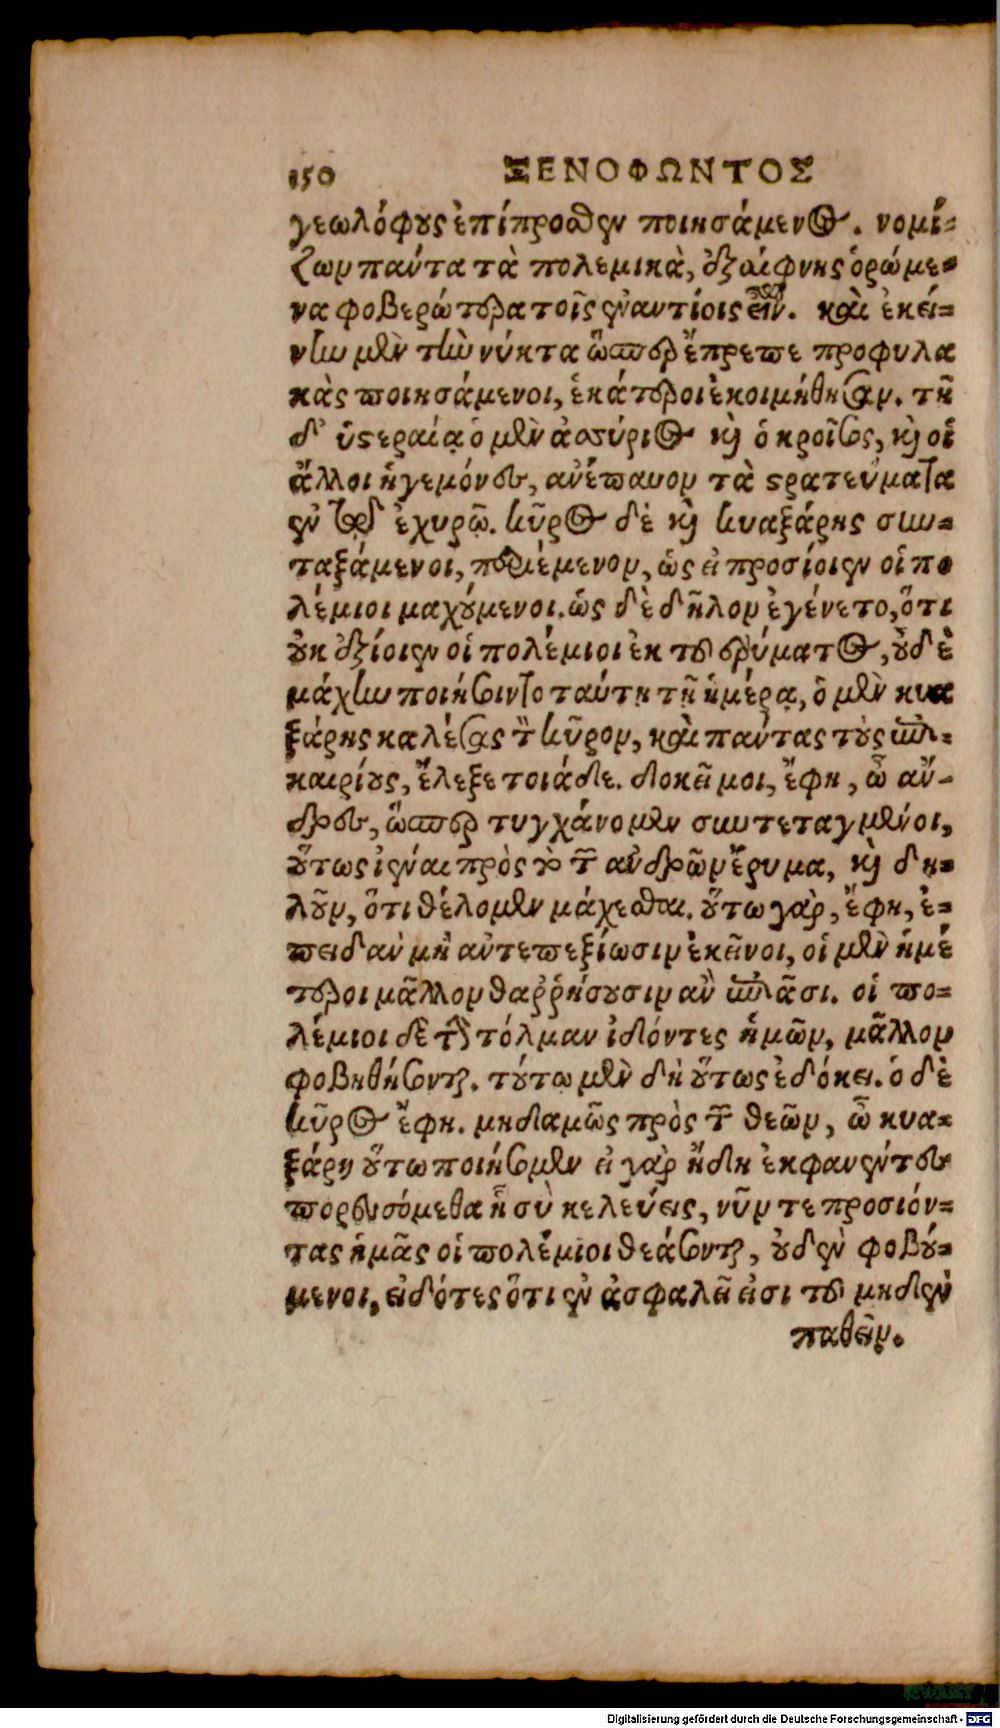 150 ΞΕΝΟΦΩΝΤΟΣ
γεωλόφους ἐπίπροσθεν ποιησάμενος. νομί-
ζων πάντα τὰ πολεμικὰ, ἐξαίφνης ὁρώμε-
να φοβερώτερα τοῖς ἐναντίοις εἶν. καὶ ἐκεί-
νην μὲν τὴν νύκτα ὥσπερ ἔπρεπε προφυλα
κὰς ποιησάμενοι, ἑκάτεροι ἐκοιμήθησαν. τῇ
δ' ὑστεραίᾳ ὁ μὲν ἀσσύριος καὶ ὁ κροῖσος, καὶ οἱ
ἄλλοι ἡγεμόνες, ἀνέπαυον τὰ στρατεύματα
ἐν τῷ ἐχυρῷ. κῦρος δὲ καὶ κυαξάρης συν-
ταξάμενοι, περιέμενον, ὡς εἰ προσίοιεν οἱ πο
λέμιοι μαχούμενοι. ὡς δὲ δῆλον ἐγένετο, ὅτι
οὐκ ἐξίοιεν οἱ πολέμιοι ἐκ τοῦ ἐρύματος, οὐδὲ
μάχην ποιήσοιντο ταύτῃ τῇ ἡμέρᾳ, ὁ μὲν κυα
ξάρης καλέσας τὸν κῦρον, καὶ πάντας τοὺς ἐπι-
καιρίους, ἔλεξε τοιάδε. δοκεῖ μοι, ἔφη, ὦ ἄν-
δρες, ὥσπερ τυγχάνομεν συντεταγμένοι,
οὕτως ἰέναι πρὸς τὸ τῶν ἀνδρῶν ἔρυμα, καὶ δη-
λοῦν, ὅτι θέλομεν μάχεσθαι. οὕτω γὰρ, ἔφη, ἐ-
πειδὰν μὴ ἀντεπεξίωσιν ἐκεῖνοι, οἱ μὲν ἡμέ
τεροι μᾶλλον θαῤῥήσουσιν ἂν πᾶσι. οἱ πο-
λέμιοι δὲ τὴν τόλμαν ἰδόντες ἡμῶν, μᾶλλον
φοβηθήσονται. τούτῳ μὲν δὴ οὕτως ἐδόκει. ὁ δὲ
κῦρος ἔφη. μηδαμῶς πρὸς τῶν θεῶν, ὦ κυα-
ξάρη οὕτω ποιήσωμεν εἰ γὰρ ἤδη ἐκφανέντες
πορευσόμεθα ᾗ σὺ κελεύεις, νῦν τε προσιόν-
τας ἡμᾶς οἱ πολέμιοι θεάσονται, οὐδὲν φοβού-
μενοι, εἰδότες ὅτι ἐν ἀσφαλεῖ εἰσι τοῦ μηδὲν
παθεῖν.
Digitalisierung gefördert durch die Deutsche Forschungsgemeinschaft - DFG